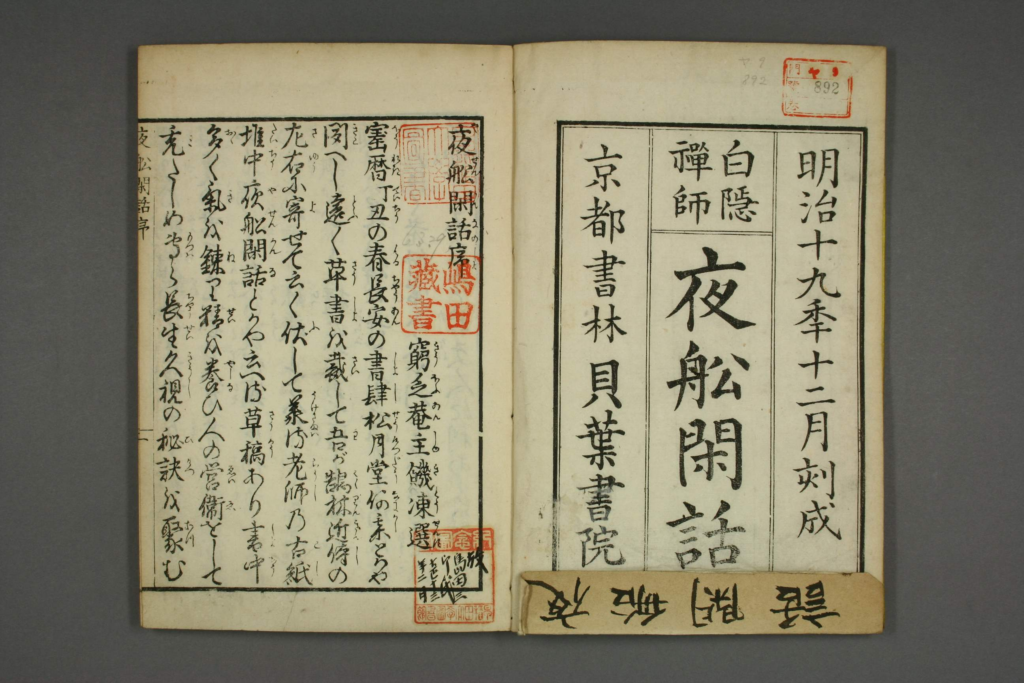 明治十九季十二月刻成
白隠
禪師
夜舩閑話
京都書林貝葉書院
892
夜舩閑話
夜舩閑話序
嶋田
藏書
窮乏菴主饑凍選
寳暦丁丑の春長安の書肆松月堂何某とかや
聞へし遠く草書を裁して吾が鵠林近侍の
左右に寄せて云く伏して義す老師乃古紙
堆中夜舩閑話とかや云へる草稿あり書中
多く氣を錬り精を養ひ人の営衛をして
充たしめ専ら長生久視の秘訣を聚む
夜舩閑話序